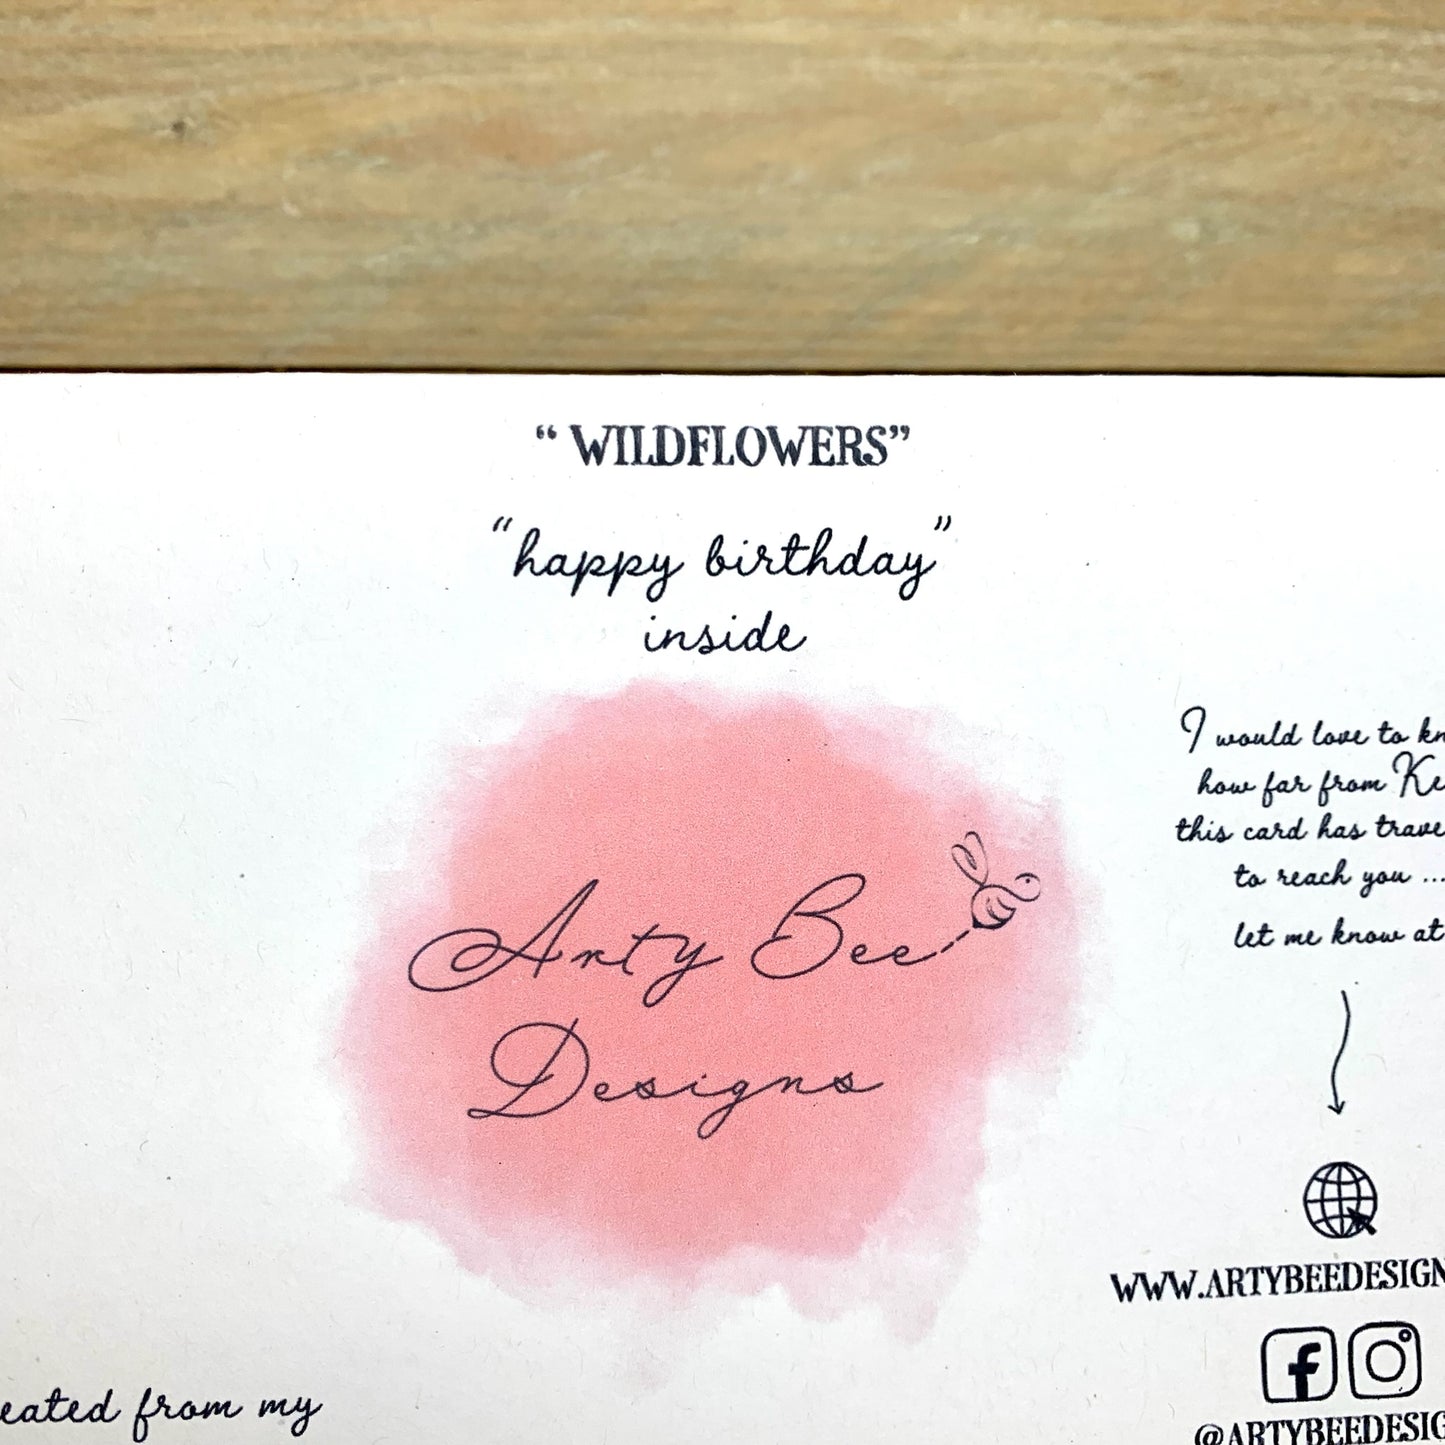 “ WILDFLOWERS”
“happy birthday”
inside
Arty Bee
Designs
I would love to
how far from
this card has
to reach you ...
let me know at
WWW.ARTYBEEDESIGN
@ARTYBEEDESIG
from my